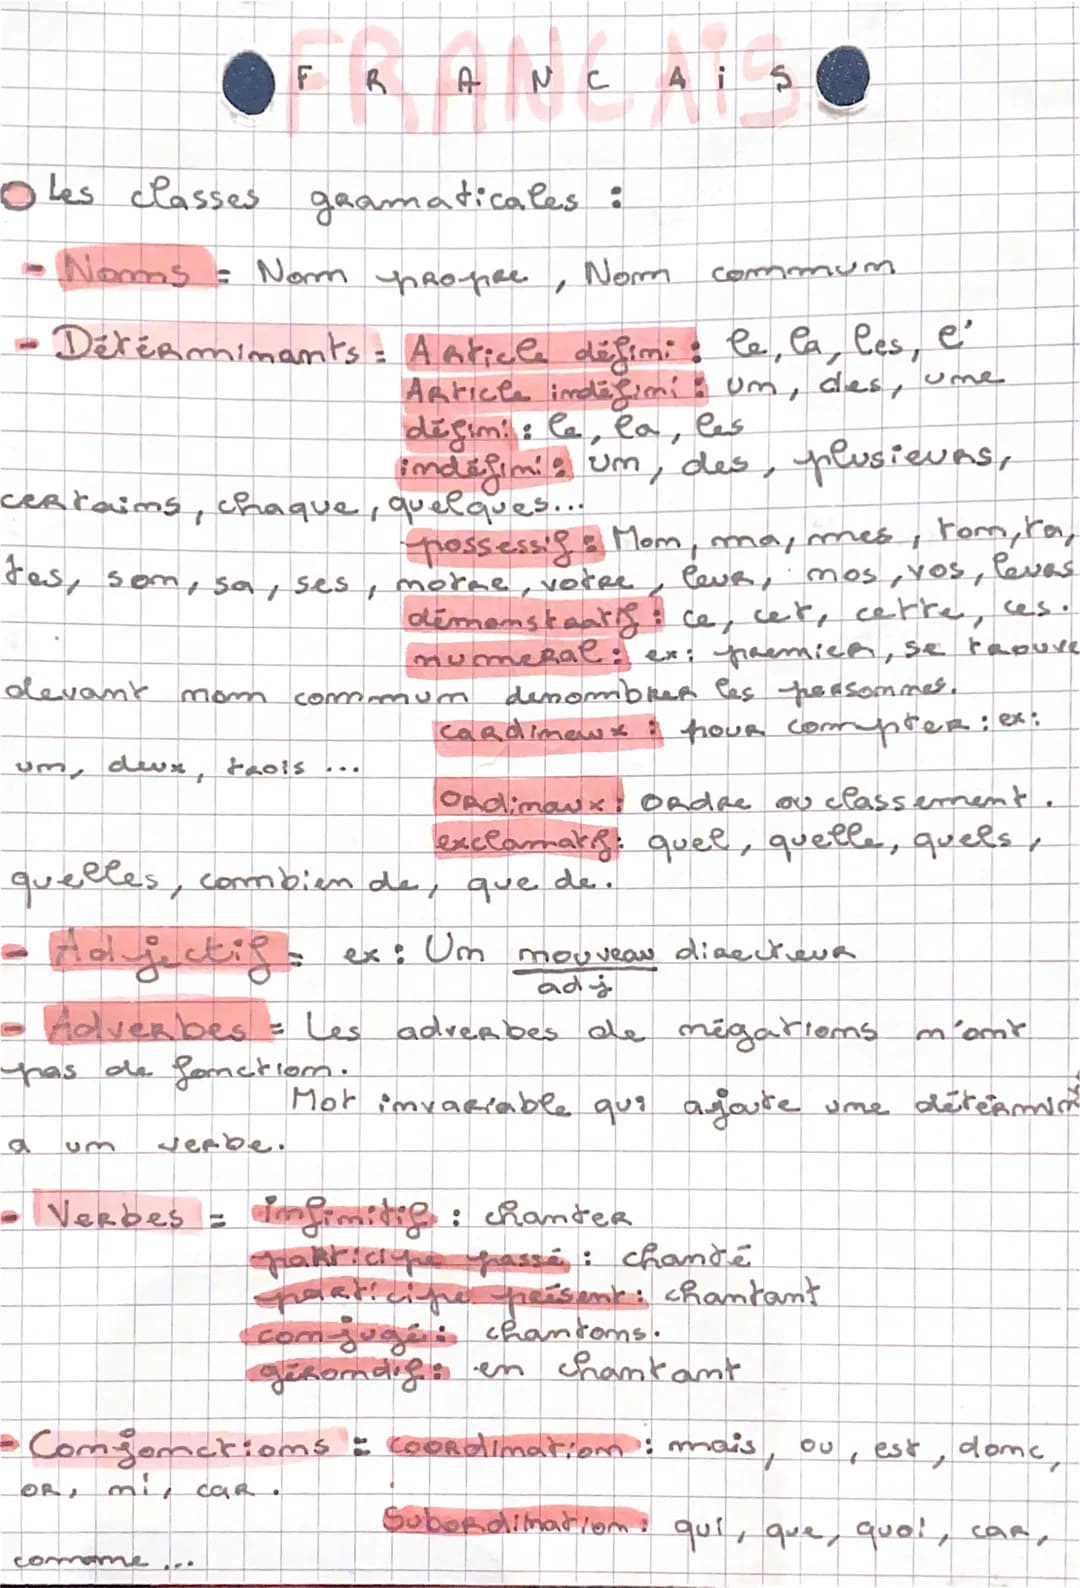 FRANCAiS
Les classes gramaticales :
- Noms = Nom propre, Nom commum
- Détérminants = Article défini : le, la, les, l'
Article indéfini : un, des, une
défini : le, la, les
indéfini : un, des, plusieurs,
certains, chaque, quelques...
possessif : Mon, ma, mes, ton, ta,
tes, son, sa, ses, notre, votre, leur, nos, vos, leurs
démonstratif : ce, cet, cette, ces.
numeral : ex : premier, se trouve
devant nom commun denombrer les personnes.
cardinaux : pour compter : ex :
un, deux, trois ...
Ordinaux : ordre ou classement.
exclamatif : quel, quelle, quels,
quelles, combien de, que de.
- Adjectif = ex : Un nouveau directeur
adj
- Adverbes = Les adverbes de négations n'ont
pas de fonction.
Mot invariable qui ajoute une détérmin
a un verbe.
- Verbes = infinitif : chanter
participe passé : chanté
participe présent : chantant
conjugé : chantons.
gérondif : en chantant
- Conjonctions = coordination : mais, ou, est, donc,
OR, ni, car.
Subordination : qui, que, quoi, car,
comme ...